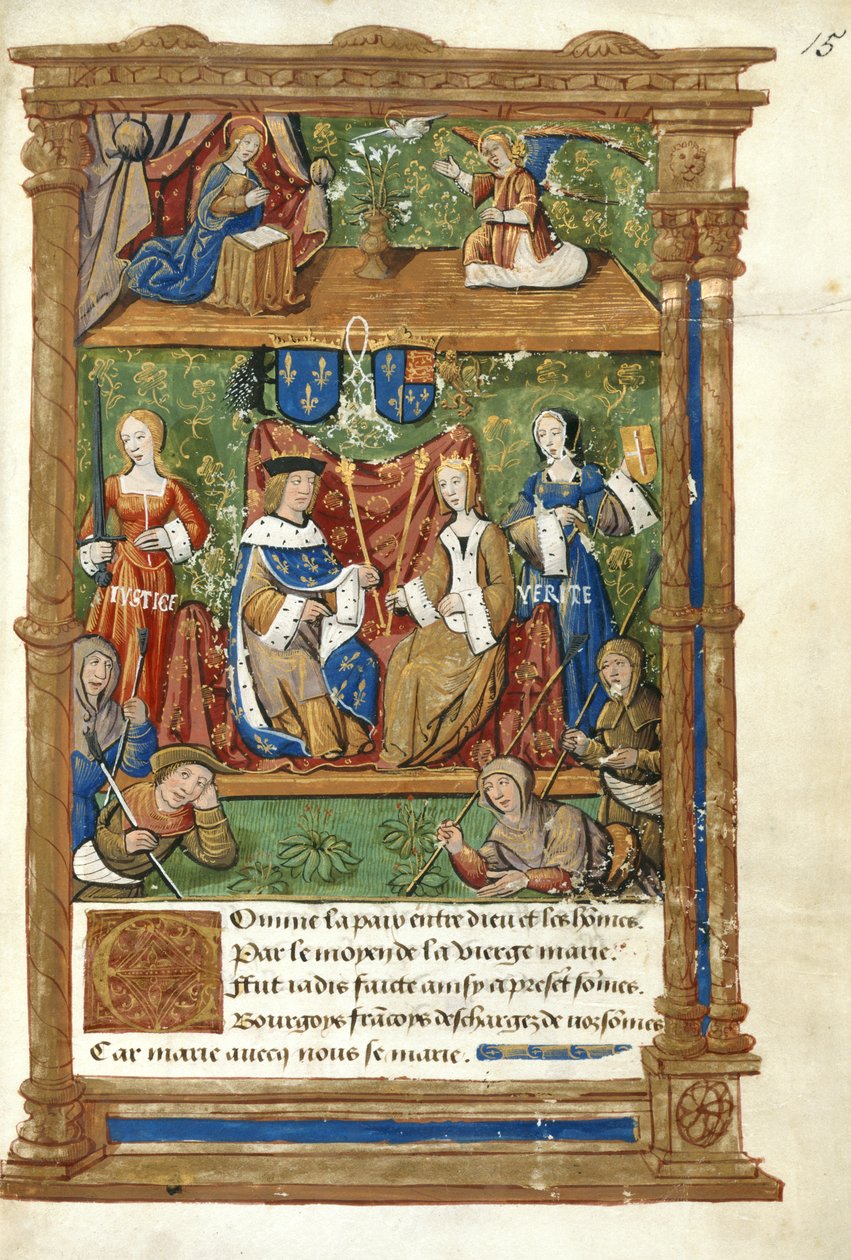 15
IVSTICE
VERITE
Comme la paix entre dieu et les hōmes.
Par le moyen de la vierge marie.
Fut iadis faicte ainsy a preset sōmes.
Bourgoys frācoys deschargez de noz sōmes
Car marie avecq nous se marie.